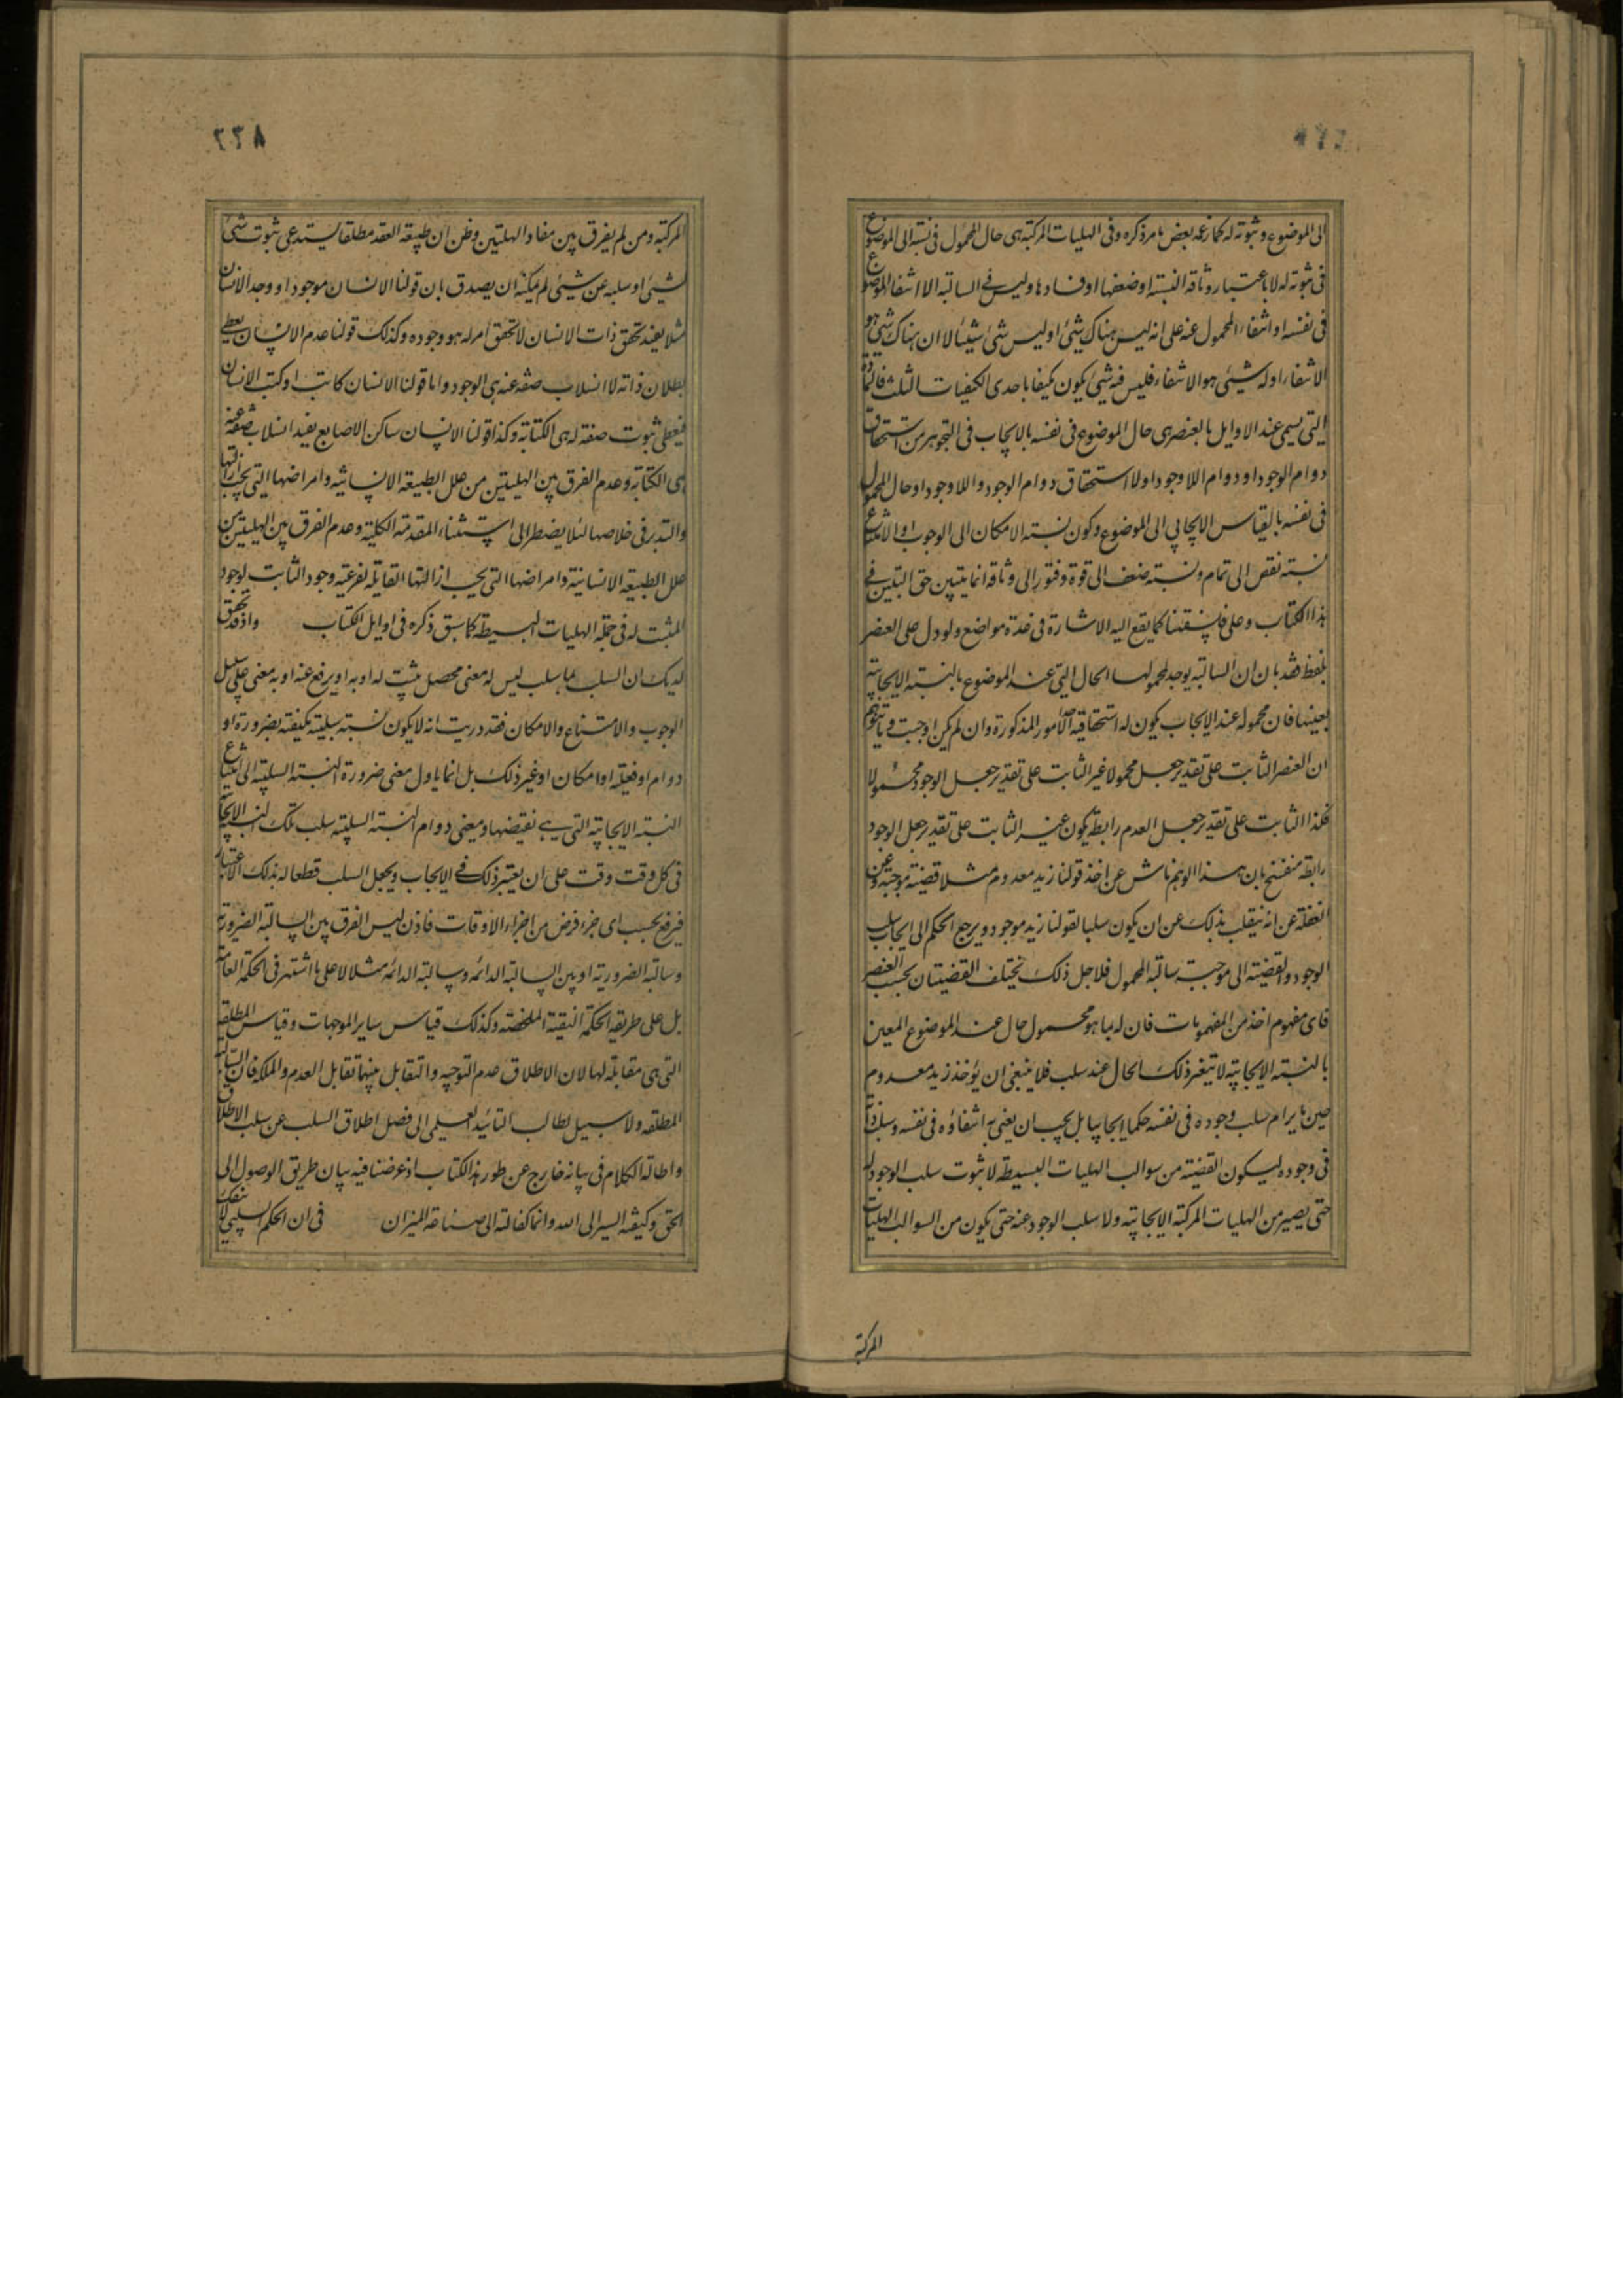 الى الموضوع و ثبوته له كما زعمه بعض ما مر ذكره وفى الهليات المركبة هى حال المحمول فى نسبته الى الموضوع
فى ثبوته له لا باعتبار وثاقة النسبة او ضعفها او فسادها وليس فى السالبة الا انتفاء الموضوع
فى نفسه او انتفاء المحمول عنه على انه ليس هناك شئ او ليس شئ شيئا لا ان هناك شئ هو
الانتفاء او له شيئى هو الانتفاء فليس فيه شئ يكون مكيفا باحدى الكيفيات الثلث فالمادة
التى يسمى عند الاوايل بالعنصر هى حال الموضوع فى نفسه بالايجاب فى التجوهر من استحقاق
دوام الوجود او دوام اللا وجود او لا استحقاق دوام الوجود واللا وجود او حال المحمول
فى نفسه بالقياس الايجابي الى الموضوع وكون نسبته الامكان الى الوجوب او الامتناع
نسبته نقص الى تمام ونسبته ضعف الى قوة وفتور الى وثاقة انما يتبين حق التبيين فى
هذا الكتاب وعلى فلسفتنا كما يقع اليه الاشارة فى عدة مواضع ولو دل على العنصر
بلفظ فقد بان ان السالبة يوجد لمحمولها الحال التى عند الموضوع بالنسبة الايجابية
بعينها فان محموله عند الايجاب يكون له استحقاقية احد الأمور المذكورة وان لم يكن اوجبت و ما يتوهم
ان العنصر الثابت على تقدير جعل محمولا غير الثابت على تقدير جعل الوجود محمولا
فكذا الثابت على تقدير جعل العدم رابطة يكون غير الثابت على تقدير جعل الوجود
رابطة منفسخ بان هذا الوهم ناش عن اخذ قولنا زيد معدوم مثلا قضية موجبة وعن
الغفلة عن انه ينقلب بذلك عن ان يكون سلبا لقولنا زيد موجود و يرجع الحكم الى ايجاب سلب
الوجود والقضية الى موجبة سالبة المحمول فلاجل ذلك يختلف القضيتان بحسب العنصر
فاى مفهوم اخذ من المفهومات فان له بما هو محمول حال عند الموضوع المعين
بالنسبة الايجابية لا يتغير ذلك الحال عند سلب فلا ينبغى ان يؤخذ زيد معدوم
حين ما يرام سلب وجوده فى نفسه حكما ايجابيا بل يجب ان يعنى به انتفاؤه فى نفسه وسلب ذاته
فى وجوده ليكون القضية من سوالب الهليات البسيطة لا ثبوت سلب الوجود له
حتى يصير من الهليات المركبة الايجابية ولا سلب الوجود عنه حتى يكون من السوالب الهليات
المركبة
٢٣٨
المركبة ومن لم يفرق بين مفاد الهليتين وظن ان طبيعة العقد مطلقا يستدعى ثبوت شئ
لشيئ او سلبه عن شيئى لم يمكنه ان يصدق بان قولنا الانسان موجود او وجد الانسان
مثلا يفيد تحقق ذات الانسان لا تحقق أمر له هو وجوده وكذلك قولنا عدم الانسان يعطى
بطلان ذاته لا انسلاب صفة عنه هى الوجود واما قولنا الانسان كاتب او كتب الانسان
فيعطى ثبوت صفة له هى الكتابة وكذا قولنا الانسان ساكن الاصابع يفيد انسلاب صفة عنه
هى الكتابة وعدم الفرق بين الهليتين من علل الطبيعة الانسانية وامراضها التى يجب ازالتها
والتدبر فى خلاصها لئلا يضطر الى استثناء المقدمة الكلية وعدم الفرق بين الهليتين من
علل الطبيعة الانسانية وامراضها التى يجب ازالتها القايلة بفرعية وجود الثابت لوجود
المثبت له فى جملة الهليات البسيطة كما سبق ذكره فى اوايل الكتاب واذ قد تحقق
لديك ان السلب بما سلب ليس له معنى محصل يثبت له او به او يرفع عنه او به معنى على سبيل
الوجوب والامتناع والامكان فقد دريت انه لا يكون نسبة سلبية مكيفة بضرورة او
دوام او فعلية او امكان او غير ذلك بل انما ياول معنى ضرورة النسبة السلبية الى امتناع
النسبة الايجابية التى هى نقيضها ومعنى دوام النسبة السلبية سلب تلك النسبة الايجابية
فى كل وقت وقت على ان يعتبر ذلك فى الايجاب ويجعل السلب قطعا له بذلك الاعتبار
فيرفع بحسب اى جزء فرض من اجزاء الأوقات فاذن ليس الفرق بين السالبة الضرورية
وسالبة الضرورية او بين السالبة الدائمة وسالبة الدائمة مثلا لا على ما اشتهر فى الحكمة العامة
بل على طريقة الحكمة النقية الملخصة وكذلك قياس ساير الموجهات وقياس المطلقة
التى هى مقابلة لها لان الاطلاق عدم التوجيه والتقابل بينهما تقابل العدم والملكة فان السالبة
المطلقة ولا سبيل لطالب التائيد العلمى الى فصل اطلاق السلب عن سلب الاطلاق
واطالة الكلام فى بيانه خارج عن طور هذا الكتاب اذ غرضنا فيه بيان طريق الوصول الى
الحق وكيفية السير الى الله وانما كفالته الى صناعة الميزان فى ان الحكم السلبى لا ينفك